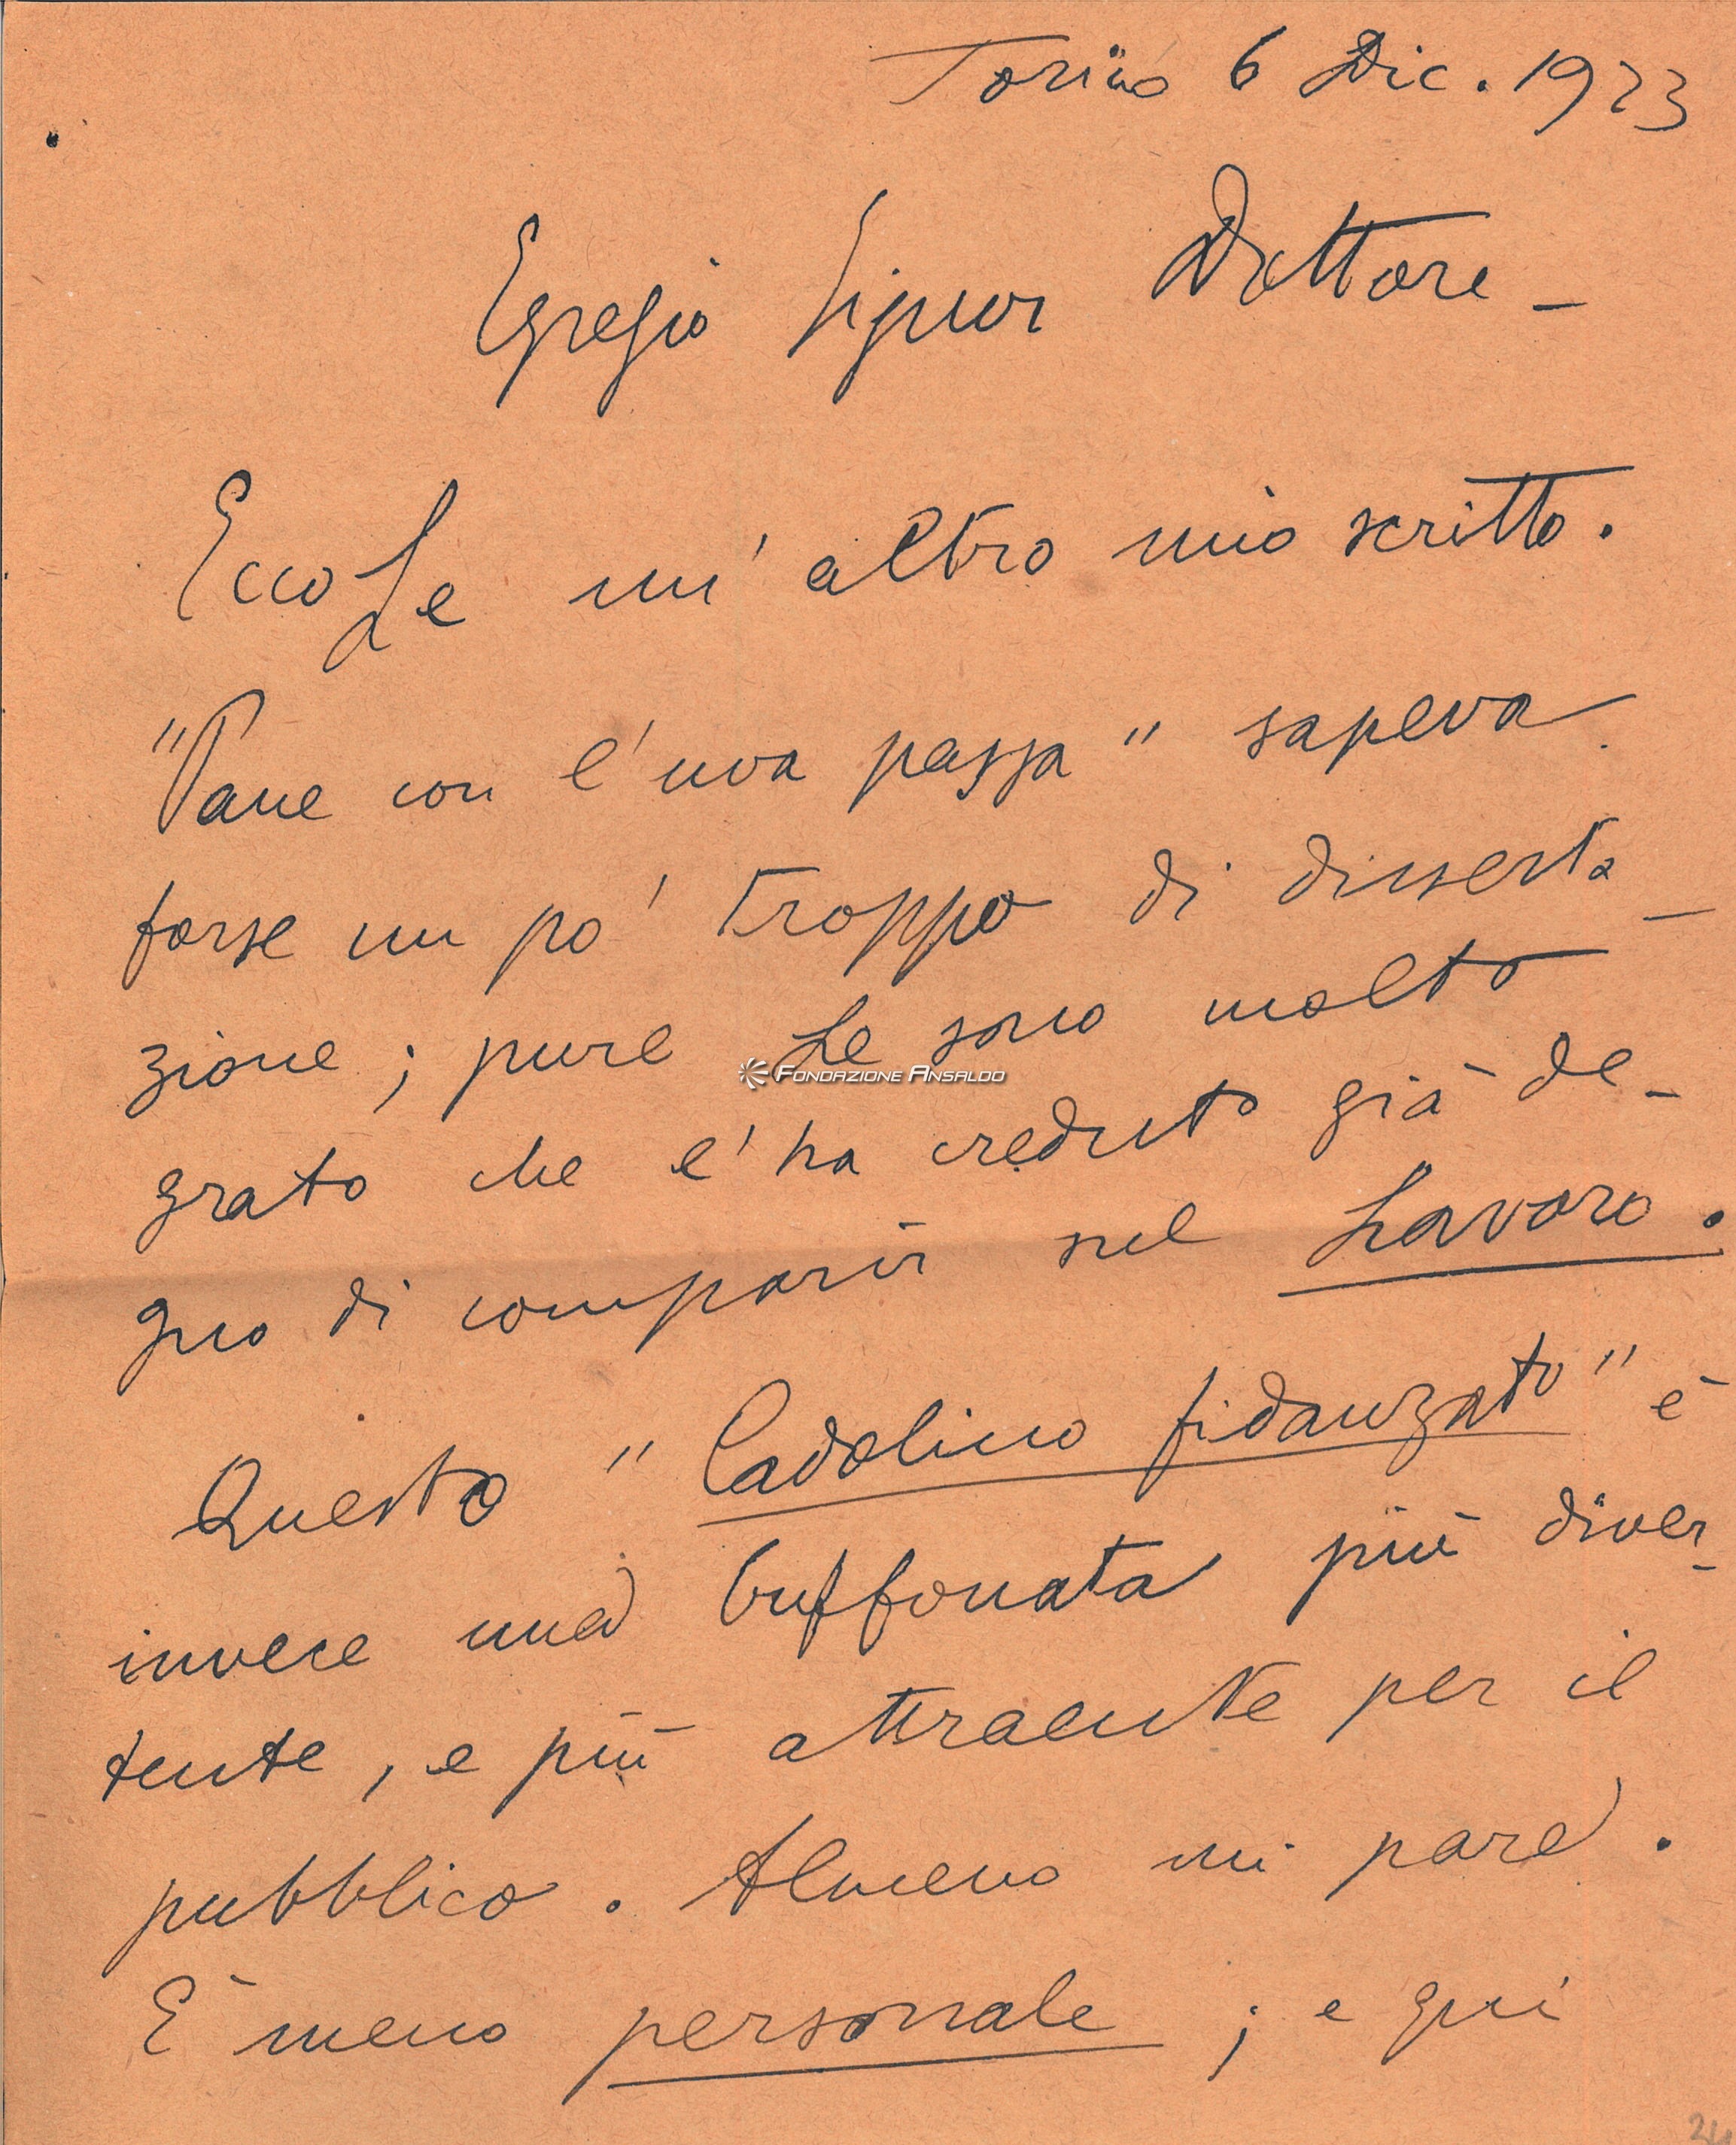 Torino 6 Dic. 1923
Egregio Signor Dottore -
EccoLe un' altro mio scritto.
"Pane con l'uva passa" sapeva
forse un po' troppo di disserta-
zione; pure Le sono molto
FONDAZIONE ANSALDO
grato che l'ha creduto già de-
gno di comparir sul Lavoro.
Questo "Cadolino fidanzato" è
invece una buffonata più diver-
tente, e più attraente per il
pubblico. Almeno mi pare.
È meno personale; e qui